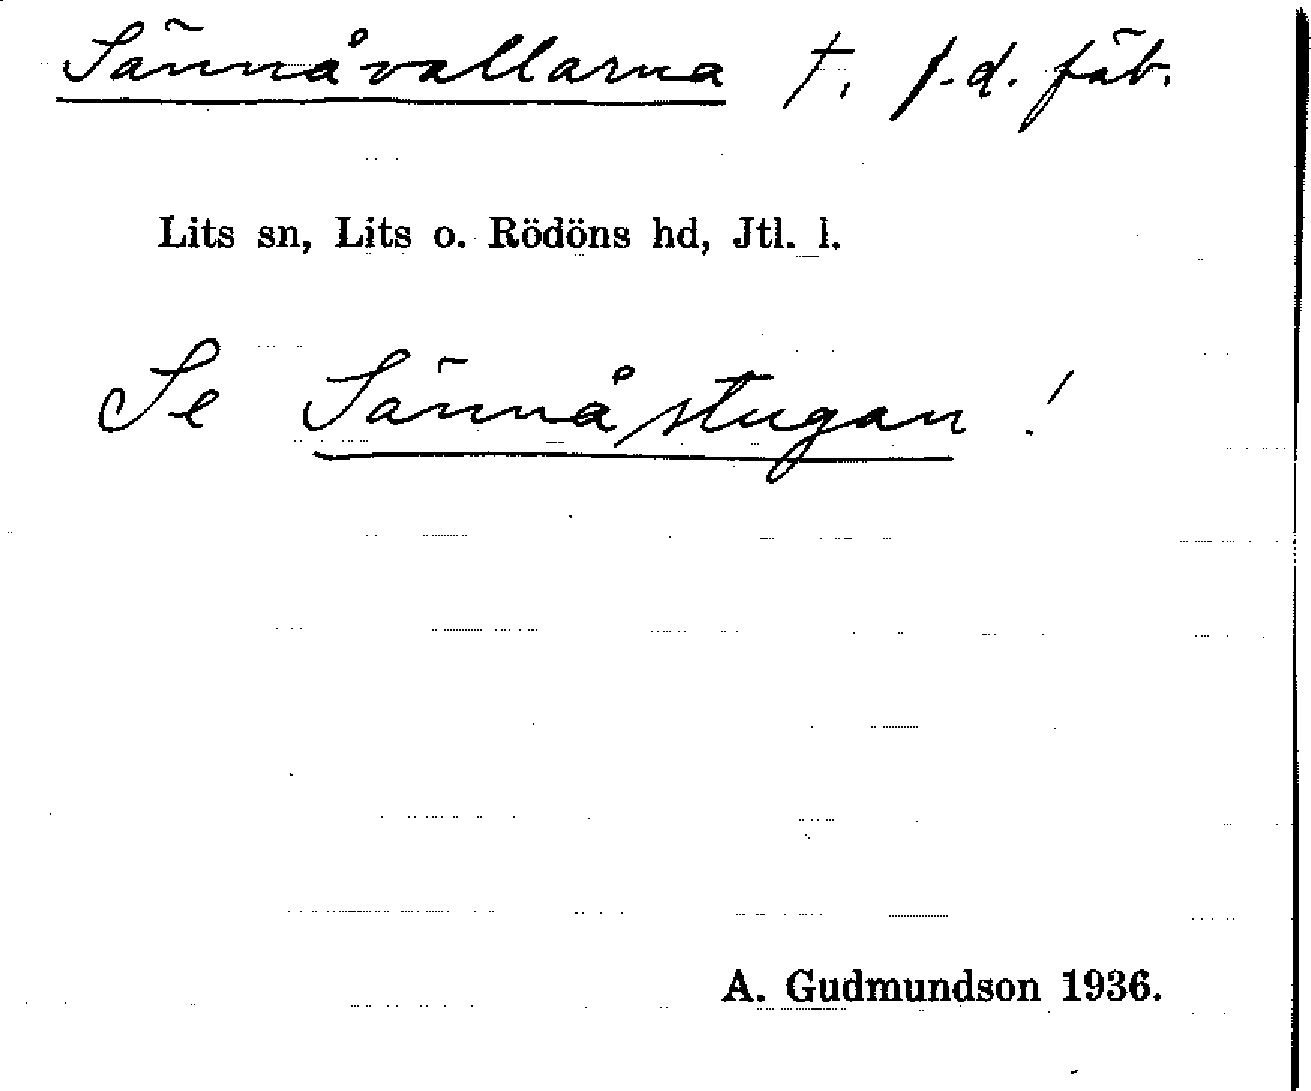 Sännåvallarna †, f.d. fäb.
Lits sn, Lits o. Rödöns hd, Jtl. l.
Se Sännåstugan!
A. Gudmundson 1936.